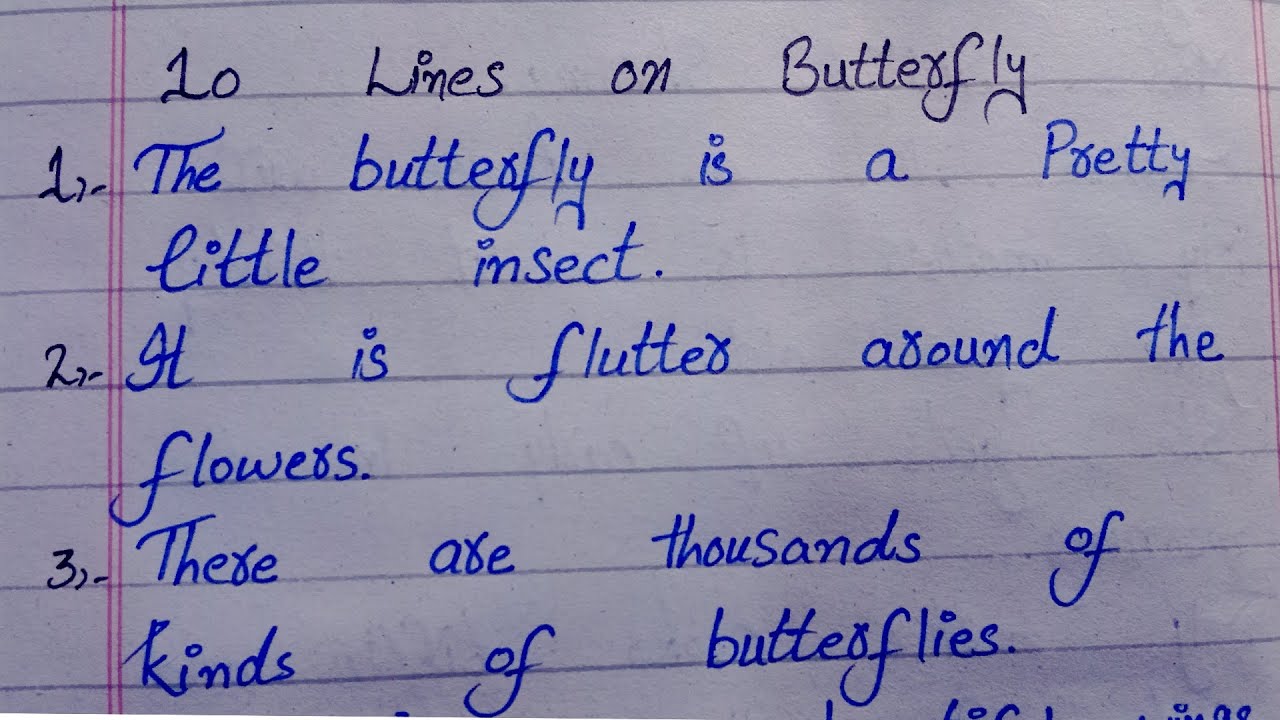 10 Lines on Butterfly
1,- The butterfly is a Pretty
little insect.
2,- It is flutter around the
flowers.
3,- There are thousands of
kinds of butterflies.